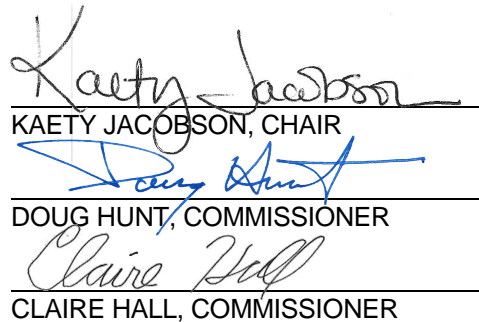 Kaety Jacobson
KAETY JACOBSON, CHAIR
Doug Hunt
DOUG HUNT, COMMISSIONER
Claire Hall
CLAIRE HALL, COMMISSIONER